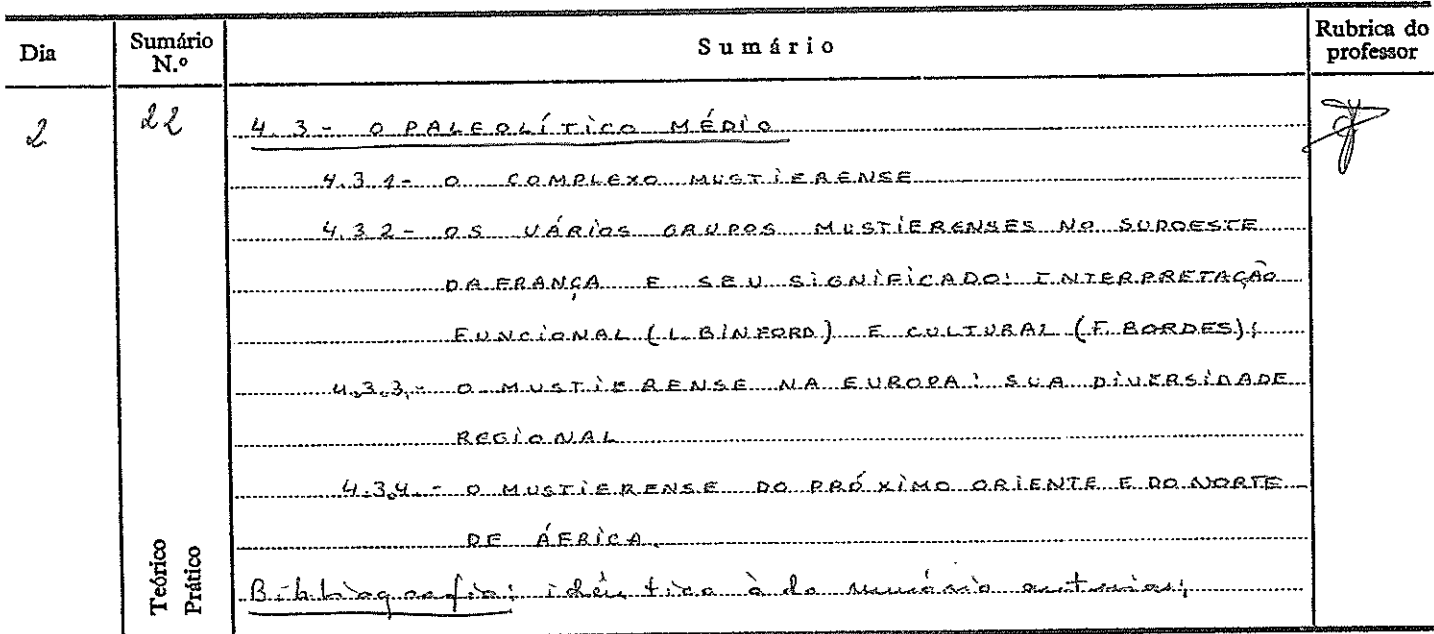 Dia Sumário N.º Sumário Rubrica do professor
2 22 4.3- O PALEOLÍTICO MÉDIO
4.3.1- O COMPLEXO MUSTIERENSE
4.3.2- OS VÁRIOS GRUPOS MUSTIERENSES NO SUDOESTE
DA FRANÇA E SEU SIGNIFICADO: INTERPRETAÇÃO
FUNCIONAL (L. BINFORD) E CULTURAL (F. BORDES);
4.3.3.- O MUSTIERENSE NA EUROPA: SUA DIVERSIDADE
REGIONAL
4.3.4.- O MUSTIERENSE DO PRÓXIMO ORIENTE E DO NORTE
DE ÁFRICA.
Teórico
Prático
Bibliografia: idêntica à do sumário anterior;